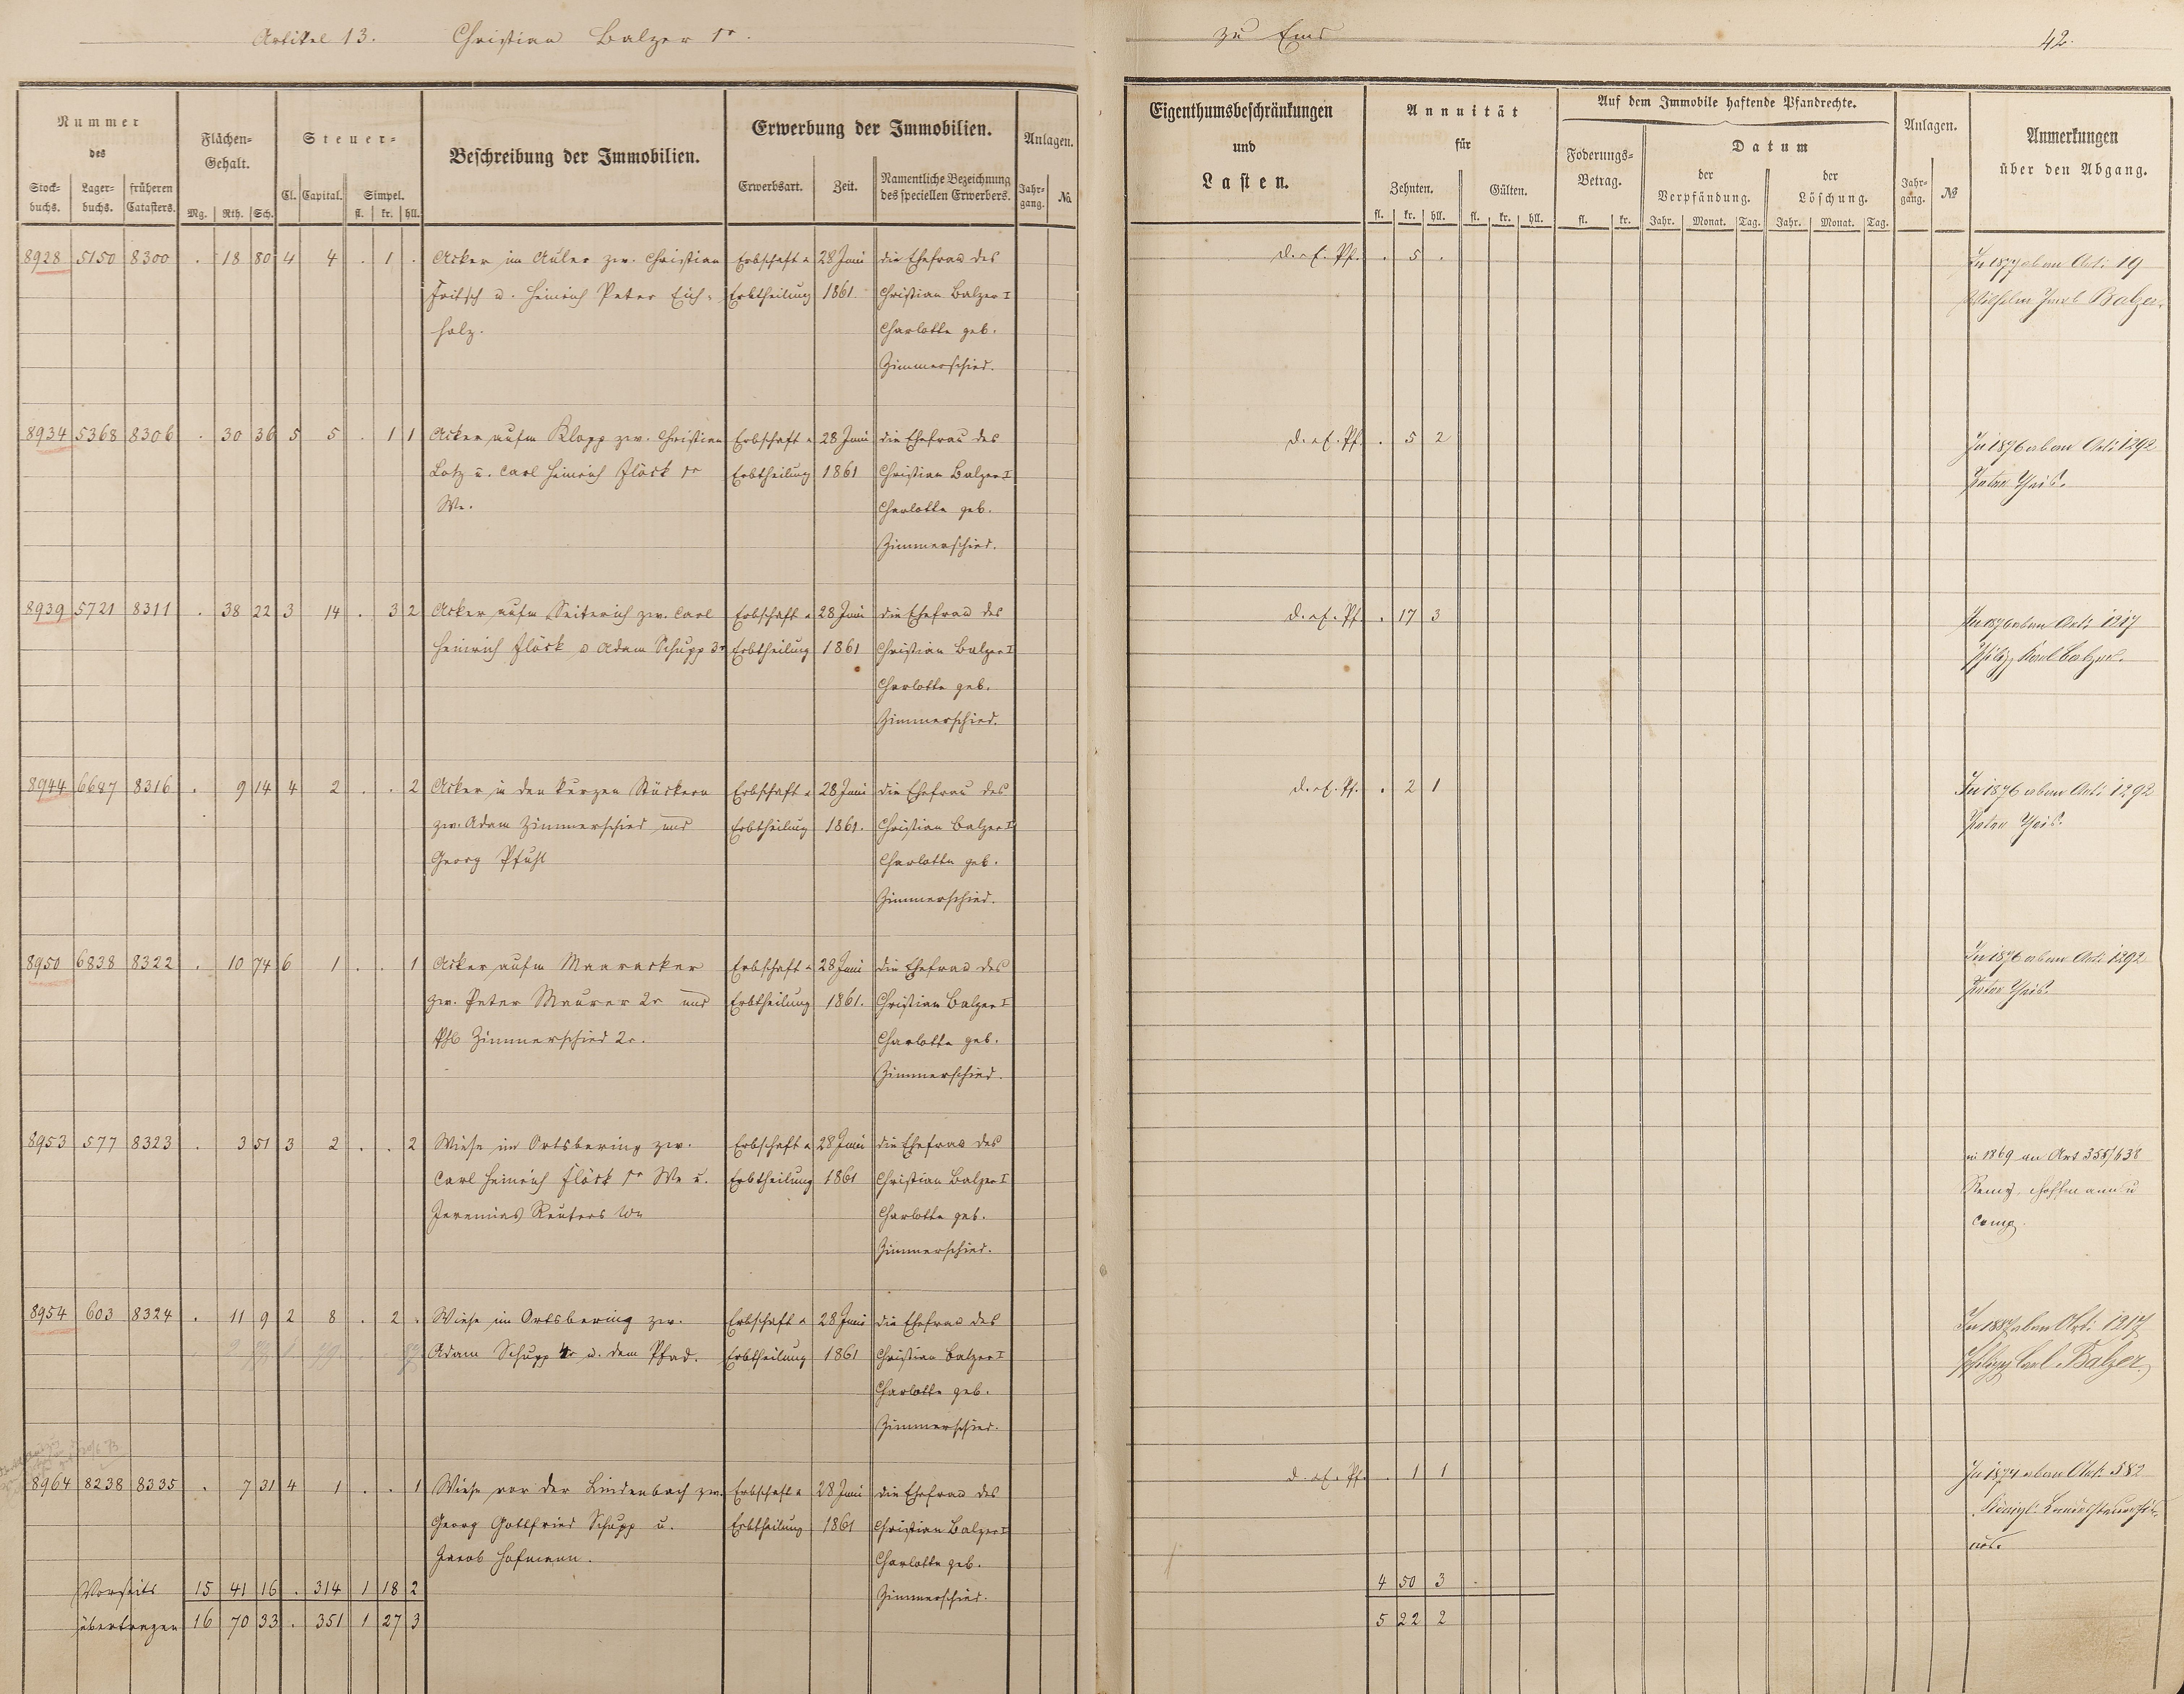 Artikel 13. Christian Balzer 1r. zu Ems 42.
Nummer des
Stockbuchs. Lagerbuchs. früheren Catasters.
Flächen-Gehalt.
Mg. Rth. Sch.
Steuer-
Cl. Capital. Simpel.
fl. kr. hll.
Beschreibung der Immobilien.
Erwerbung der Immobilien.
Erwerbsart. Zeit. Namentliche Bezeichnung des speciellen Erwerbers.
Anlagen.
Jahrgang. No.
Eigenthumsbeschränkungen
und
Lasten.
Annuität
für
Zehnten. Gülten.
fl. kr. hll. fl. kr. hll.
Auf dem Immobile haftende Pfandrechte.
Foderungs-Betrag.
fl. kr.
Datum
der Verpfändung. der Löschung.
Jahr. Monat. Tag. Jahr. Monat. Tag.
Anlagen.
Jahrgang. No
Anmerkungen
über den Abgang.
8928 5150 8300 . 18 80 4 4 . 1 . Acker im Aüler zw. Christian Erbschaft u 28 Juni die Ehefrau des d. u. E. Pf. . 5 . In 1877 oben Art: 19
Fritsch u. Heinrich Peter Eich- Erbtheilung 1861. Christian Balzer I Wilhelm Jacob Balzer.
holz. Charlotte geb.
Zimmerschied.
8934 5368 8306 . 30 36 5 5 . 1 1 Acker aufm Klopp zw. Christian Erbschaft u 28 Juni die Ehefrau des d. u. E. Pf. . 5 2 In 1876 oben Art: 1292
Lotz u. Carl Heinrich Flöck 1r Erbtheilung 1861 Christian Balzer I Peter
We. Charlotte geb.
Zimmerschied.
8939 5721 8311 . 38 22 3 14 . 3 2 Acker aufm Seiterich zw. Carl Erbschaft u 28 Juni die Ehefrau des d. u. E. Pf. . 17 3 In 1876 oben Art: 1217
Heinrich Flöck u Adam Schupp 3r Erbtheilung 1861 Christian Balzer I Philipp Karl Balzer.
Charlotte geb.
Zimmerschied.
8944 6687 8316 . 9 14 4 2 . . 2 Acker in den kurzen Stückern Erbschaft u 28 Juni die Ehefrau des d. u. E. Pf. . 2 1 In 1876 oben Art: 1292
zw. Adam Zimmerschied und Erbtheilung 1861. Christian Balzer I Peter
Georg Pfuhl Charlotte geb.
Zimmerschied.
8950 6838 8322 . 10 74 6 1 . . 1 Acker aufm Maaracker Erbschaft u 28 Juni die Ehefrau des In 1876 oben Art: 1292
zw. Peter Maurer 2r und Erbtheilung 1861. Christian Balzer I Peter
Phl Zimmerschied 2r. Charlotte geb.
Zimmerschied.
8953 577 8323 . 3 51 3 2 . . 2 Wiese im Ortsbering zw. Erbschaft u 28 Juni die Ehefrau des in 1869 an Art 355/638
Carl Heinrich Flöck 1r We u. Erbtheilung 1861 Christian Balzer I Remy, Hoffmann u
Jeremias Reuters We Charlotte geb. Comp.
Zimmerschied.
8954 603 8324 . 11 9 2 8 . 2 . Wiese im Ortsbering zw. Erbschaft u 28 Juni die Ehefrau des In 1887 oben Art: 1217
Adam Schupp 4r u. dem Pfad. Erbtheilung 1861 Christian Balzer I Philipp Carl Balzer.
Charlotte geb.
Zimmerschied.
8964 8238 8335 . 7 31 4 1 . . 1 Wiese vor der Lindenbach zw. Erbschaft u 28 Juni die Ehefrau des d. u. E. Pf. . 1 1 In 1874 oben Art: 582
Georg Gottfried Schupp u. Erbtheilung 1861 Christian Balzer I Königl.
Jacob Hofmann. Charlotte geb.
Vorseits 15 41 16 . 314 1 18 2 Zimmerschied. 4 50 3
übertragen 16 70 33 . 351 1 27 3 5 22 2